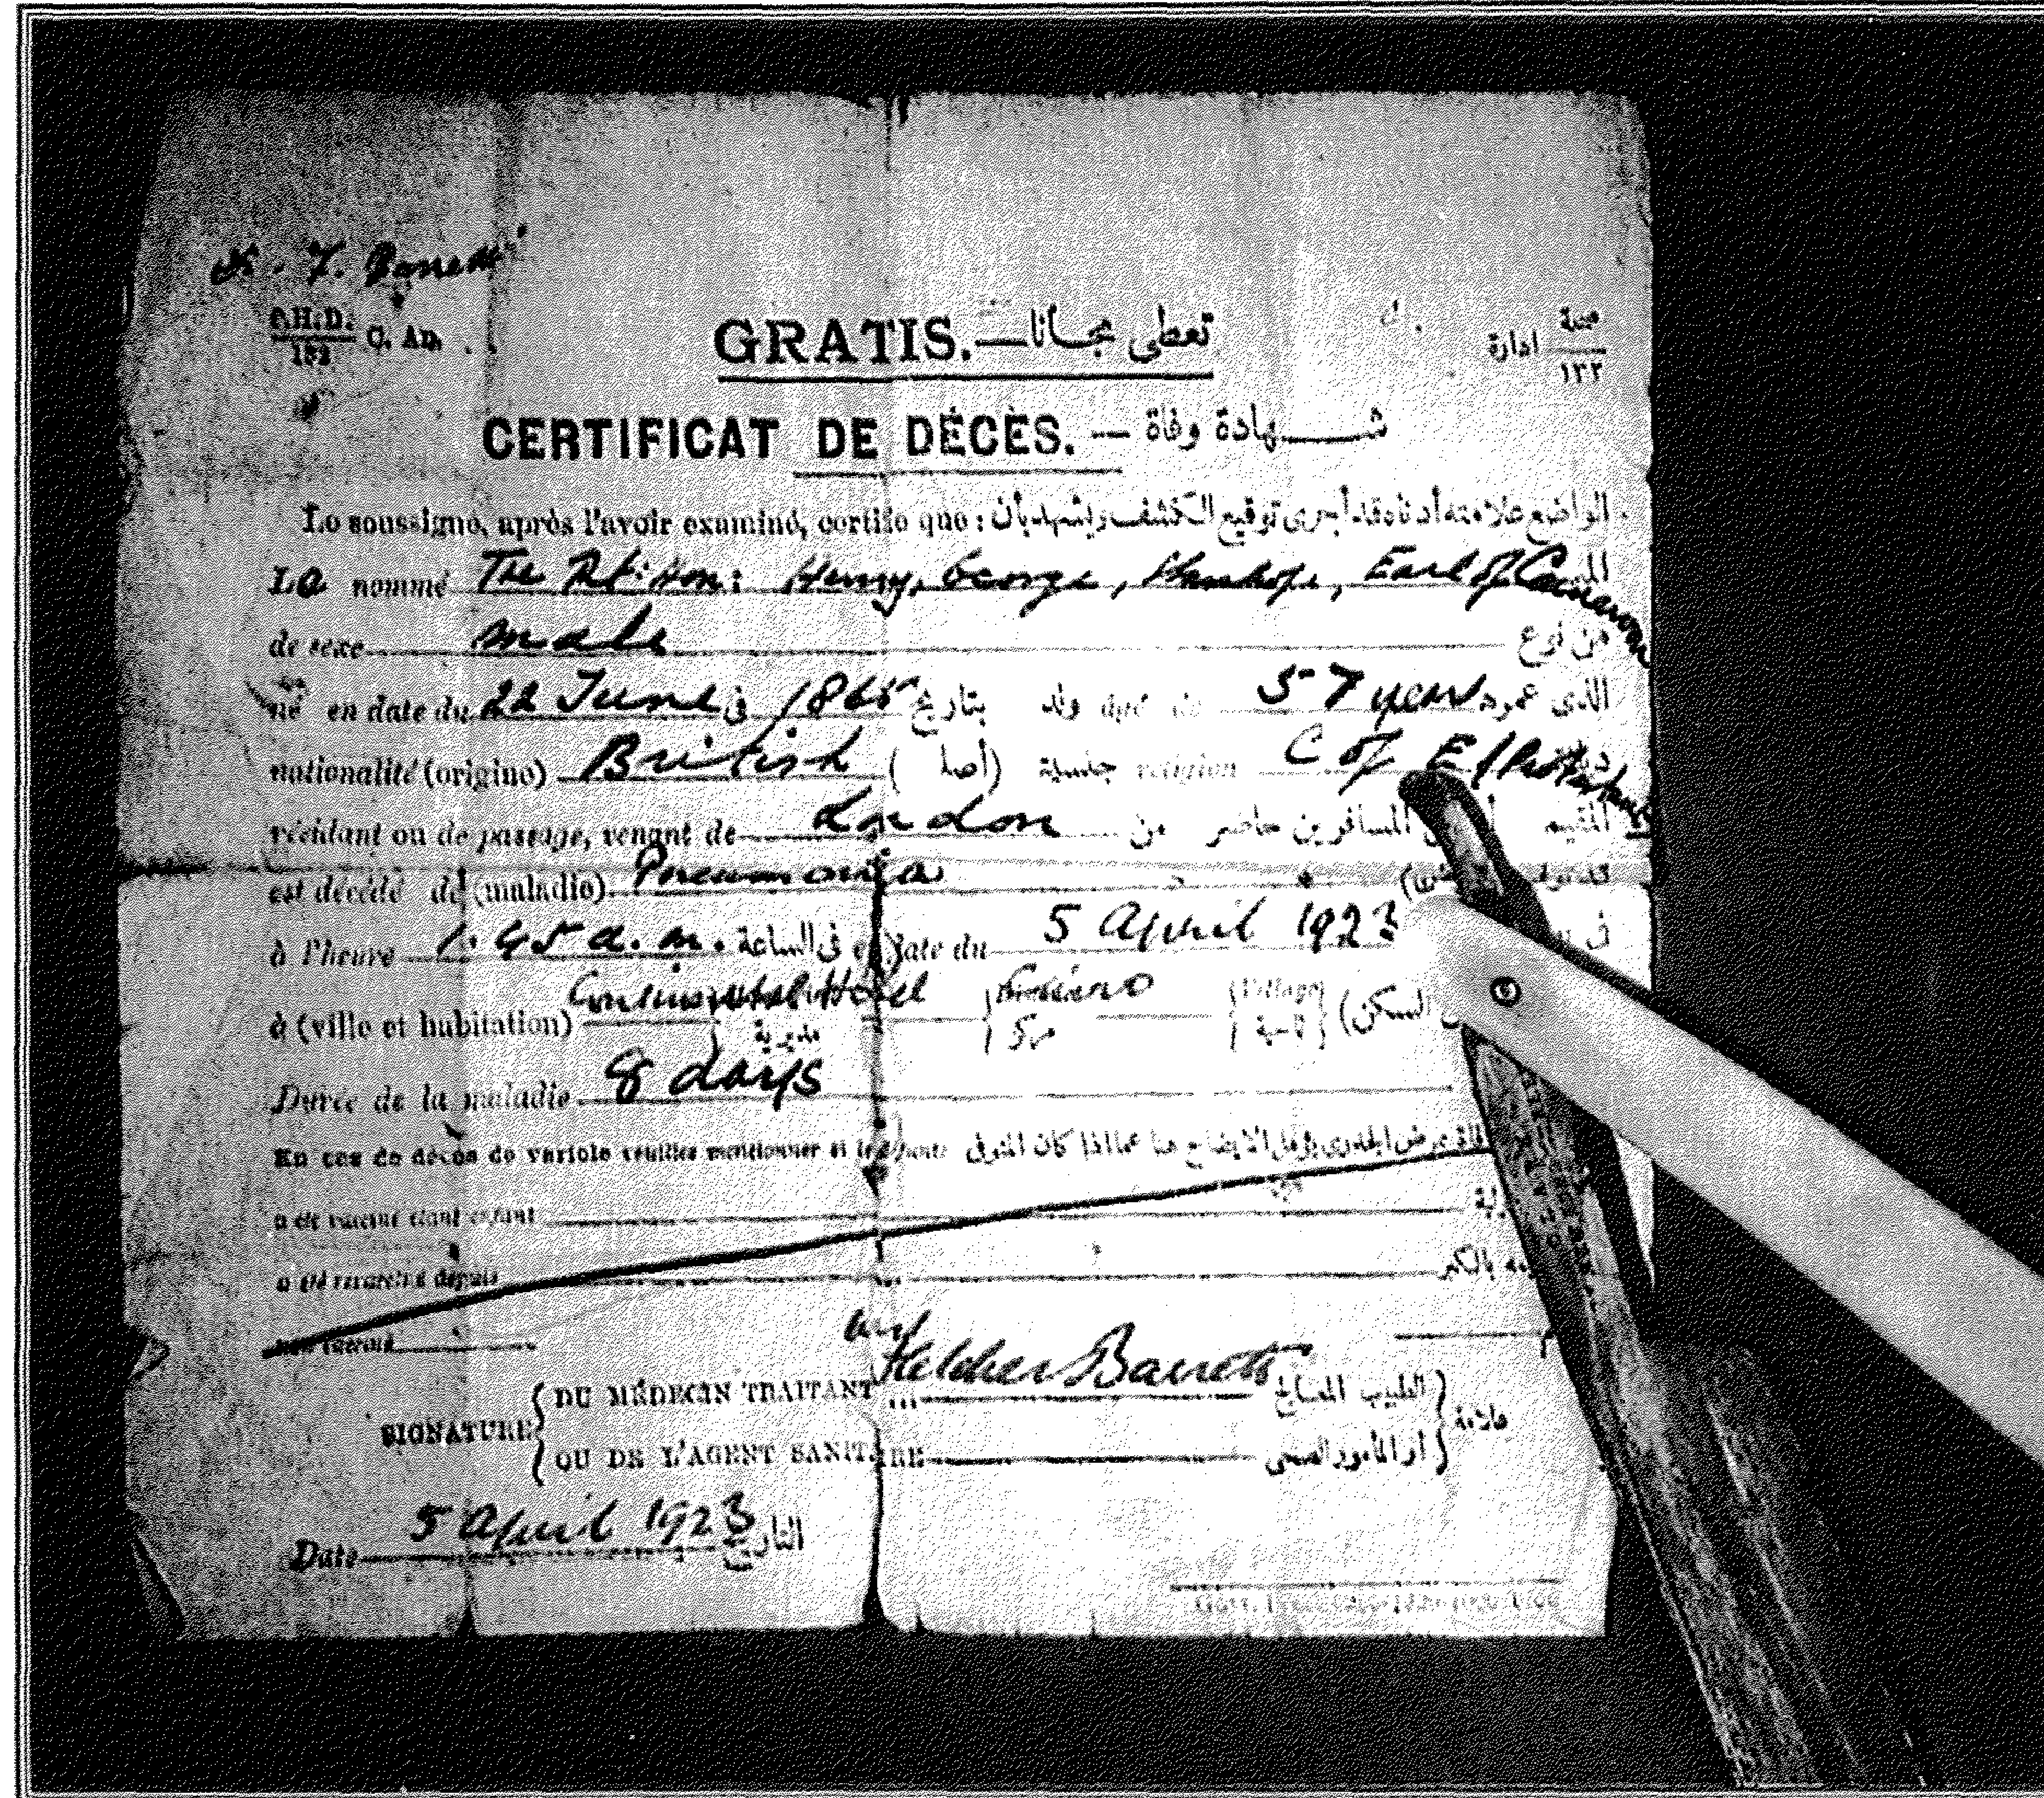 P.H.D.
132 C. An.
GRATIS.—تعطى مجانا
صحة
١٣٢ ادارة
CERTIFICAT DE DÉCÈS. — شهادة وفاة
Le soussigné, après l'avoir examiné, certifie que : الواضع علامته أدناه قد أجرى توقيع الكشف ويشهد بأن
La nommé The Rt: Hon: Henry, George, Stanhope, Earl of Carnarvon
de sexe male من نوع
né en date du 22 June في 1865 بتاريخ ولد 57 years الذى عمره
nationalité (origine) British (أصلا) جنسية religion C of E / Protestant
résidant ou de passage, venant de London من حاضر المسافرين المقيم
est décédé de (maladie) Pneumonia
à l'heure 1.45 a.m. فى الساعة en date du 5 April 1923
à (ville et habitation) Continental Hotel مديرية مركز Village ناحية (السكن
Durée de la maladie 8 days
En cas de décès de variole veuillez mentionner si le défunt هنا عما اذا كان المتوفى
a été vacciné étant enfant
a été revacciné depuis بالكبر
non vacciné
SIGNATURE DU MÉDECIN TRAITANT Fletcher Barrett الطبيب المعالج علامة
OU DE L'AGENT SANITAIRE أو المأمور الصحى
Date 5 April 1923 التاريخ